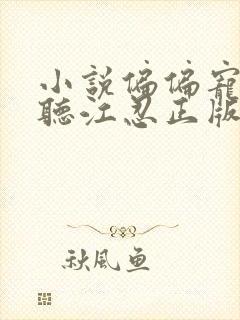 小說偏偏寵
聽江忍正版
秋風魚